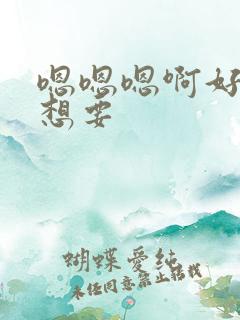 嗯嗯嗯啊好
想要
蝴蝶爱纯
未经同意禁止转载